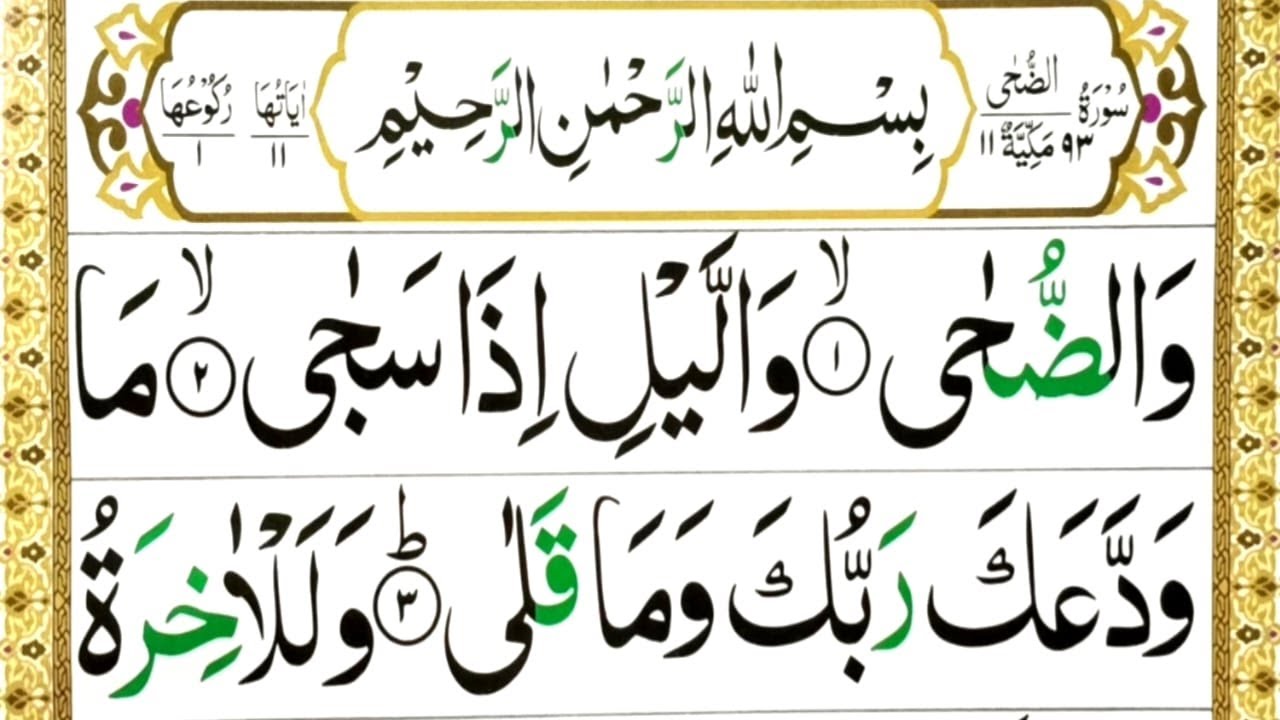 سُوْرَةُ الضُّحٰى
٩٣ مَكِّيَّةٌ ١١
بِسْمِ اللّٰهِ الرَّحْمٰنِ الرَّحِيْمِ
اٰيَاتُهَا ١١
رُكُوْعُهَا ١
وَالضُّحٰى ۙ‏ ١ وَالَّيْلِ اِذَا سَجٰى ۙ‏ ٢ مَا
وَدَّعَكَ رَبُّكَ وَمَا قَلٰى ؕ‏ ٣ وَلَلْاٰخِرَةُ